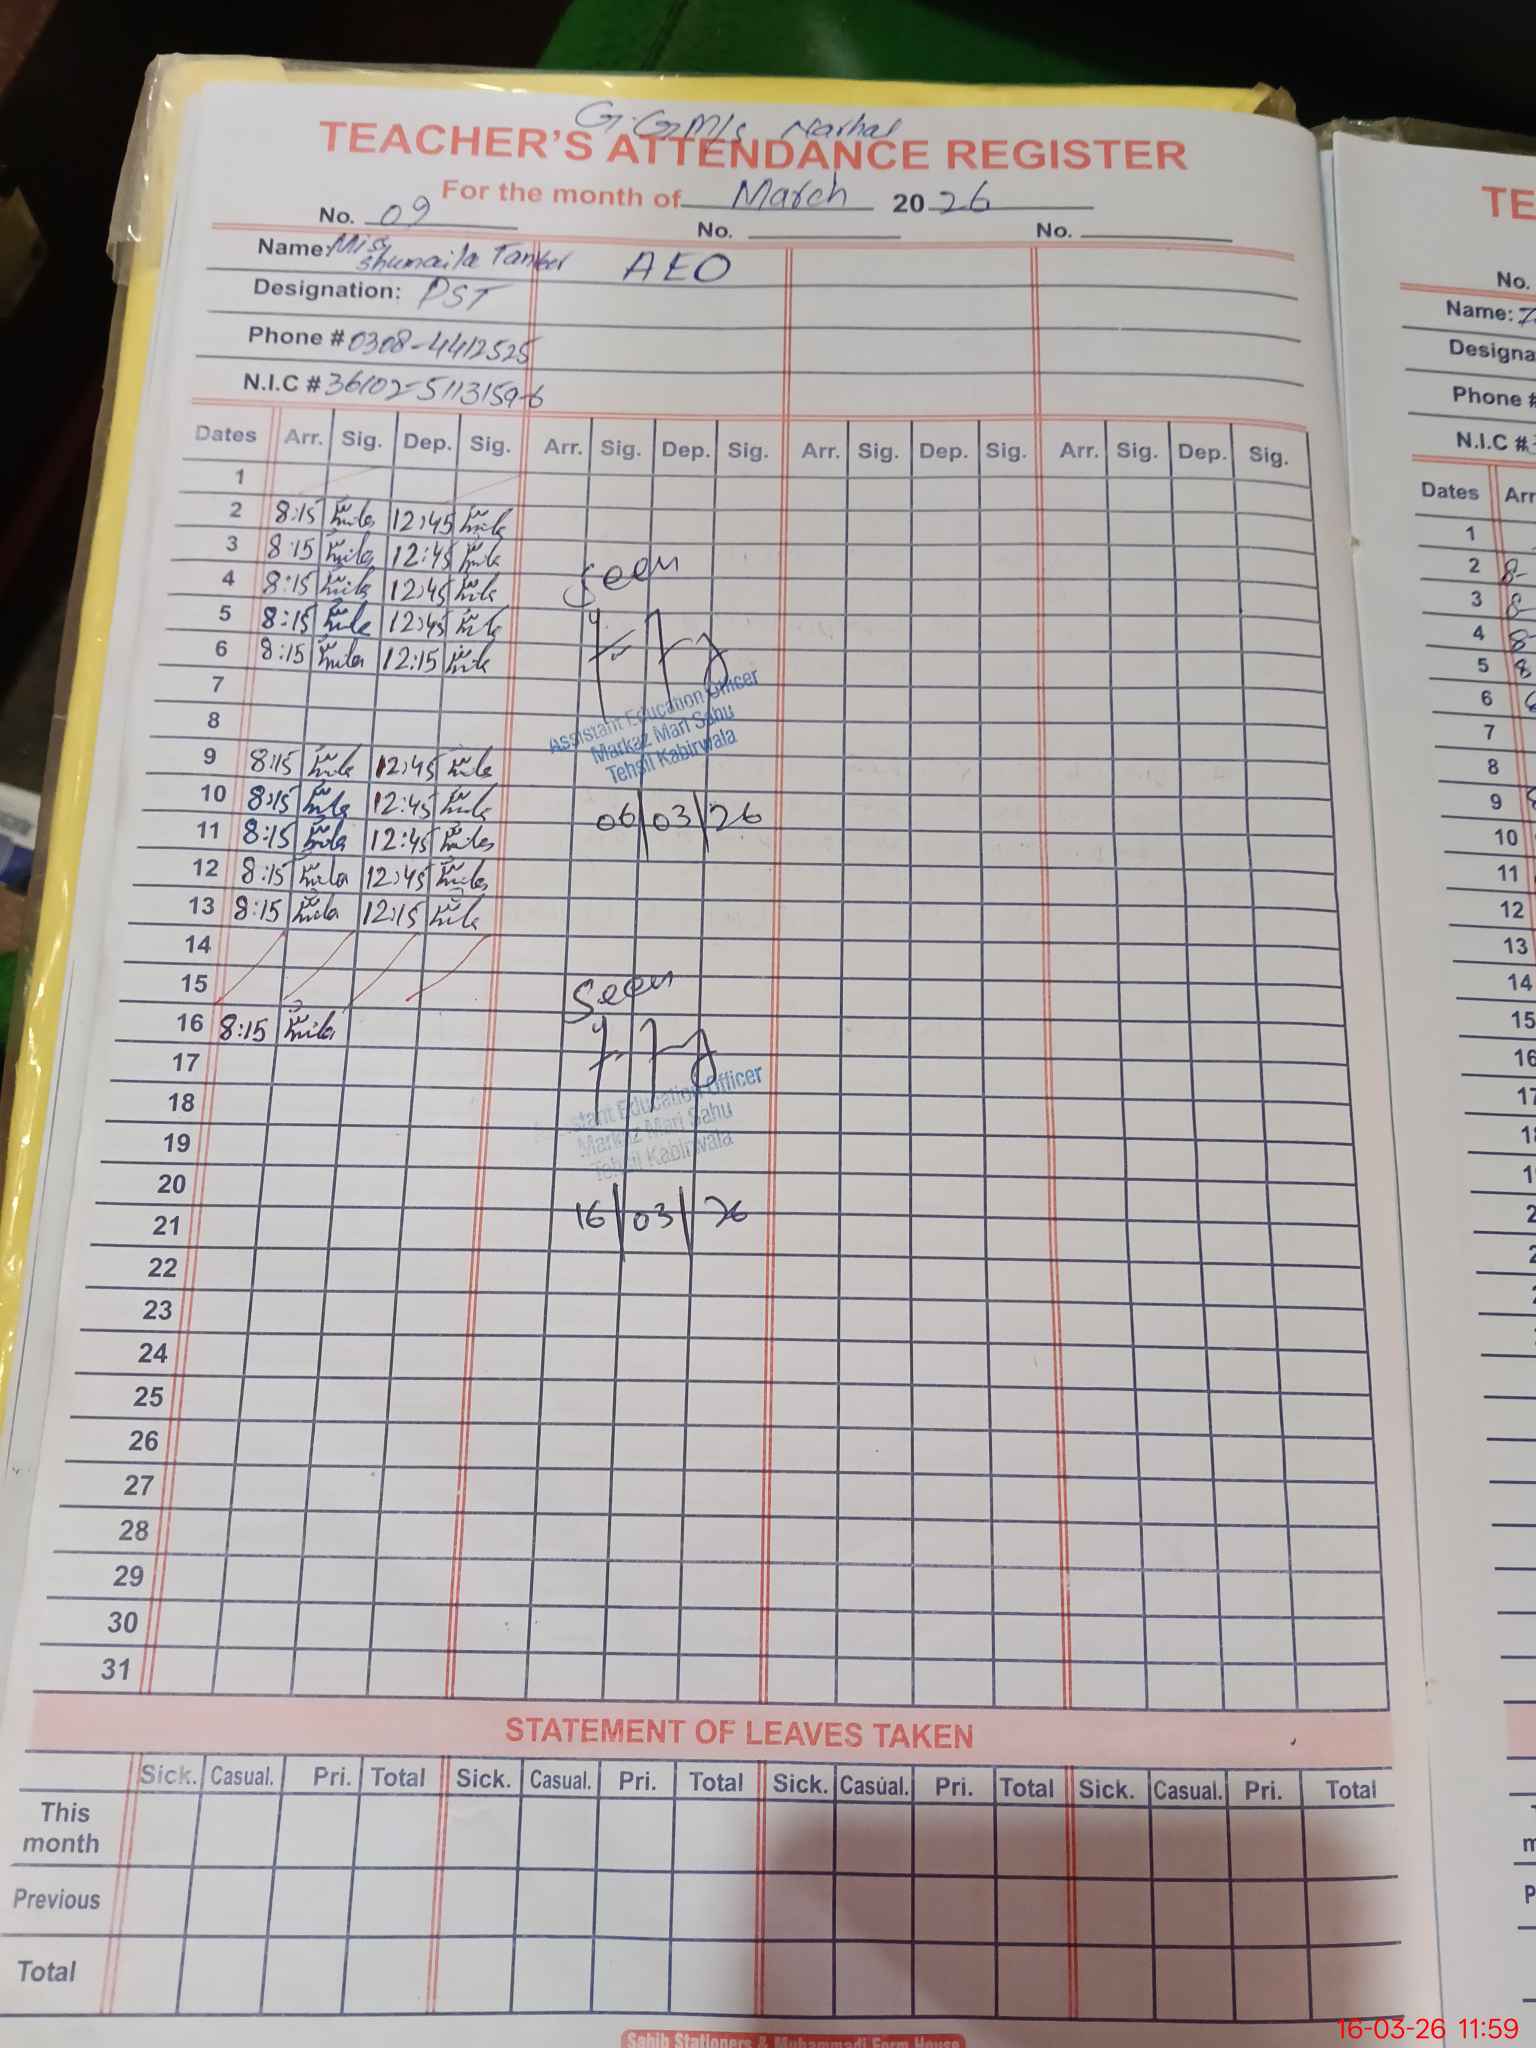 G.GM/s Narhal
TEACHER'S ATTENDANCE REGISTER
For the month of March 2026
No. 09 No. No.
Name: Miss Shumaila AEO
Designation: PST
Phone # 0308-4412525
N.I.C # 36102-5113159-6
Dates Arr. Sig. Dep. Sig. Arr. Sig. Dep. Sig. Arr. Sig. Dep. Sig. Arr. Sig. Dep. Sig.
1
2 8:15 12:45
3 8:15 12:45
4 8:15 12:45
5 8:15 12:45
6 8:15 12:15
7
8
9 8:15 12:45
10 8:15 12:45
11 8:15 12:45
12 8:15 12:45
13 8:15 12:15
14
15
16 8:15
17
18
19
20
21
22
23
24
25
26
27
28
29
30
31
Seen
Assistant Education Officer
Markaz Mari Sahu
Tehsil Kabirwala
06/03/26
Seen
Assistant Education Officer
Markaz Mari Sahu
Tehsil Kabirwala
16/03/26
STATEMENT OF LEAVES TAKEN
Sick. Casual. Pri. Total Sick. Casual. Pri. Total Sick. Casual. Pri. Total Sick. Casual. Pri. Total
This
month
Previous
Total
Sahib Stationers & Muhammadi Form House
TE
No.
Name:
Designa
Phone #
N.I.C #
Dates Arr
1
2 8-
3 8-
4 8-
5 8
6
7
8
9
10
11
12
13
14
15
16
17
16-03-26 11:59